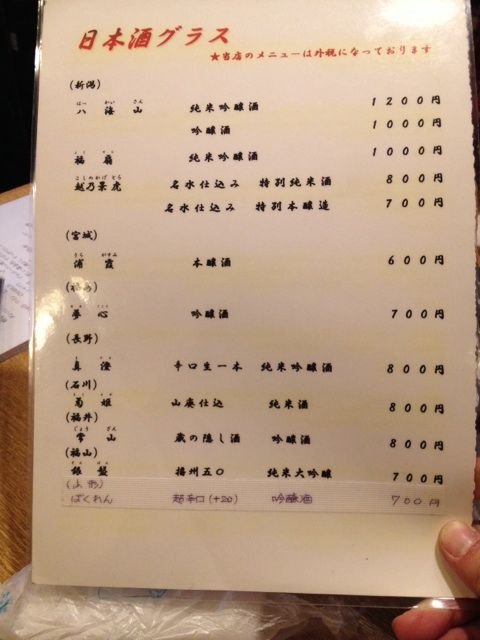 日本酒グラス
★当店のメニューは外税になっております
(新潟)
はっ かい さん
八海山 純米吟醸酒 1200円
吟醸酒 1000円
福扇 純米吟醸酒 1000円
こしのかげ とら
越乃景虎 名水仕込み 特別純米酒 800円
名水仕込み 特別本醸造 700円
(宮城)
うら がすみ
浦霞 本醸酒 600円
夢心 吟醸酒 700円
(長野)
真澄 辛口生一本 純米吟醸酒 800円
(石川)
菊姫 山廃仕込 純米酒 800円
(福井)
じょう ざん
常山 蔵の隠し酒 吟醸酒 800円
(福山)
銀盤 播州五〇 純米大吟醸 700円
(山形)
ばくれん 超辛口(+20) 吟醸酒 700円